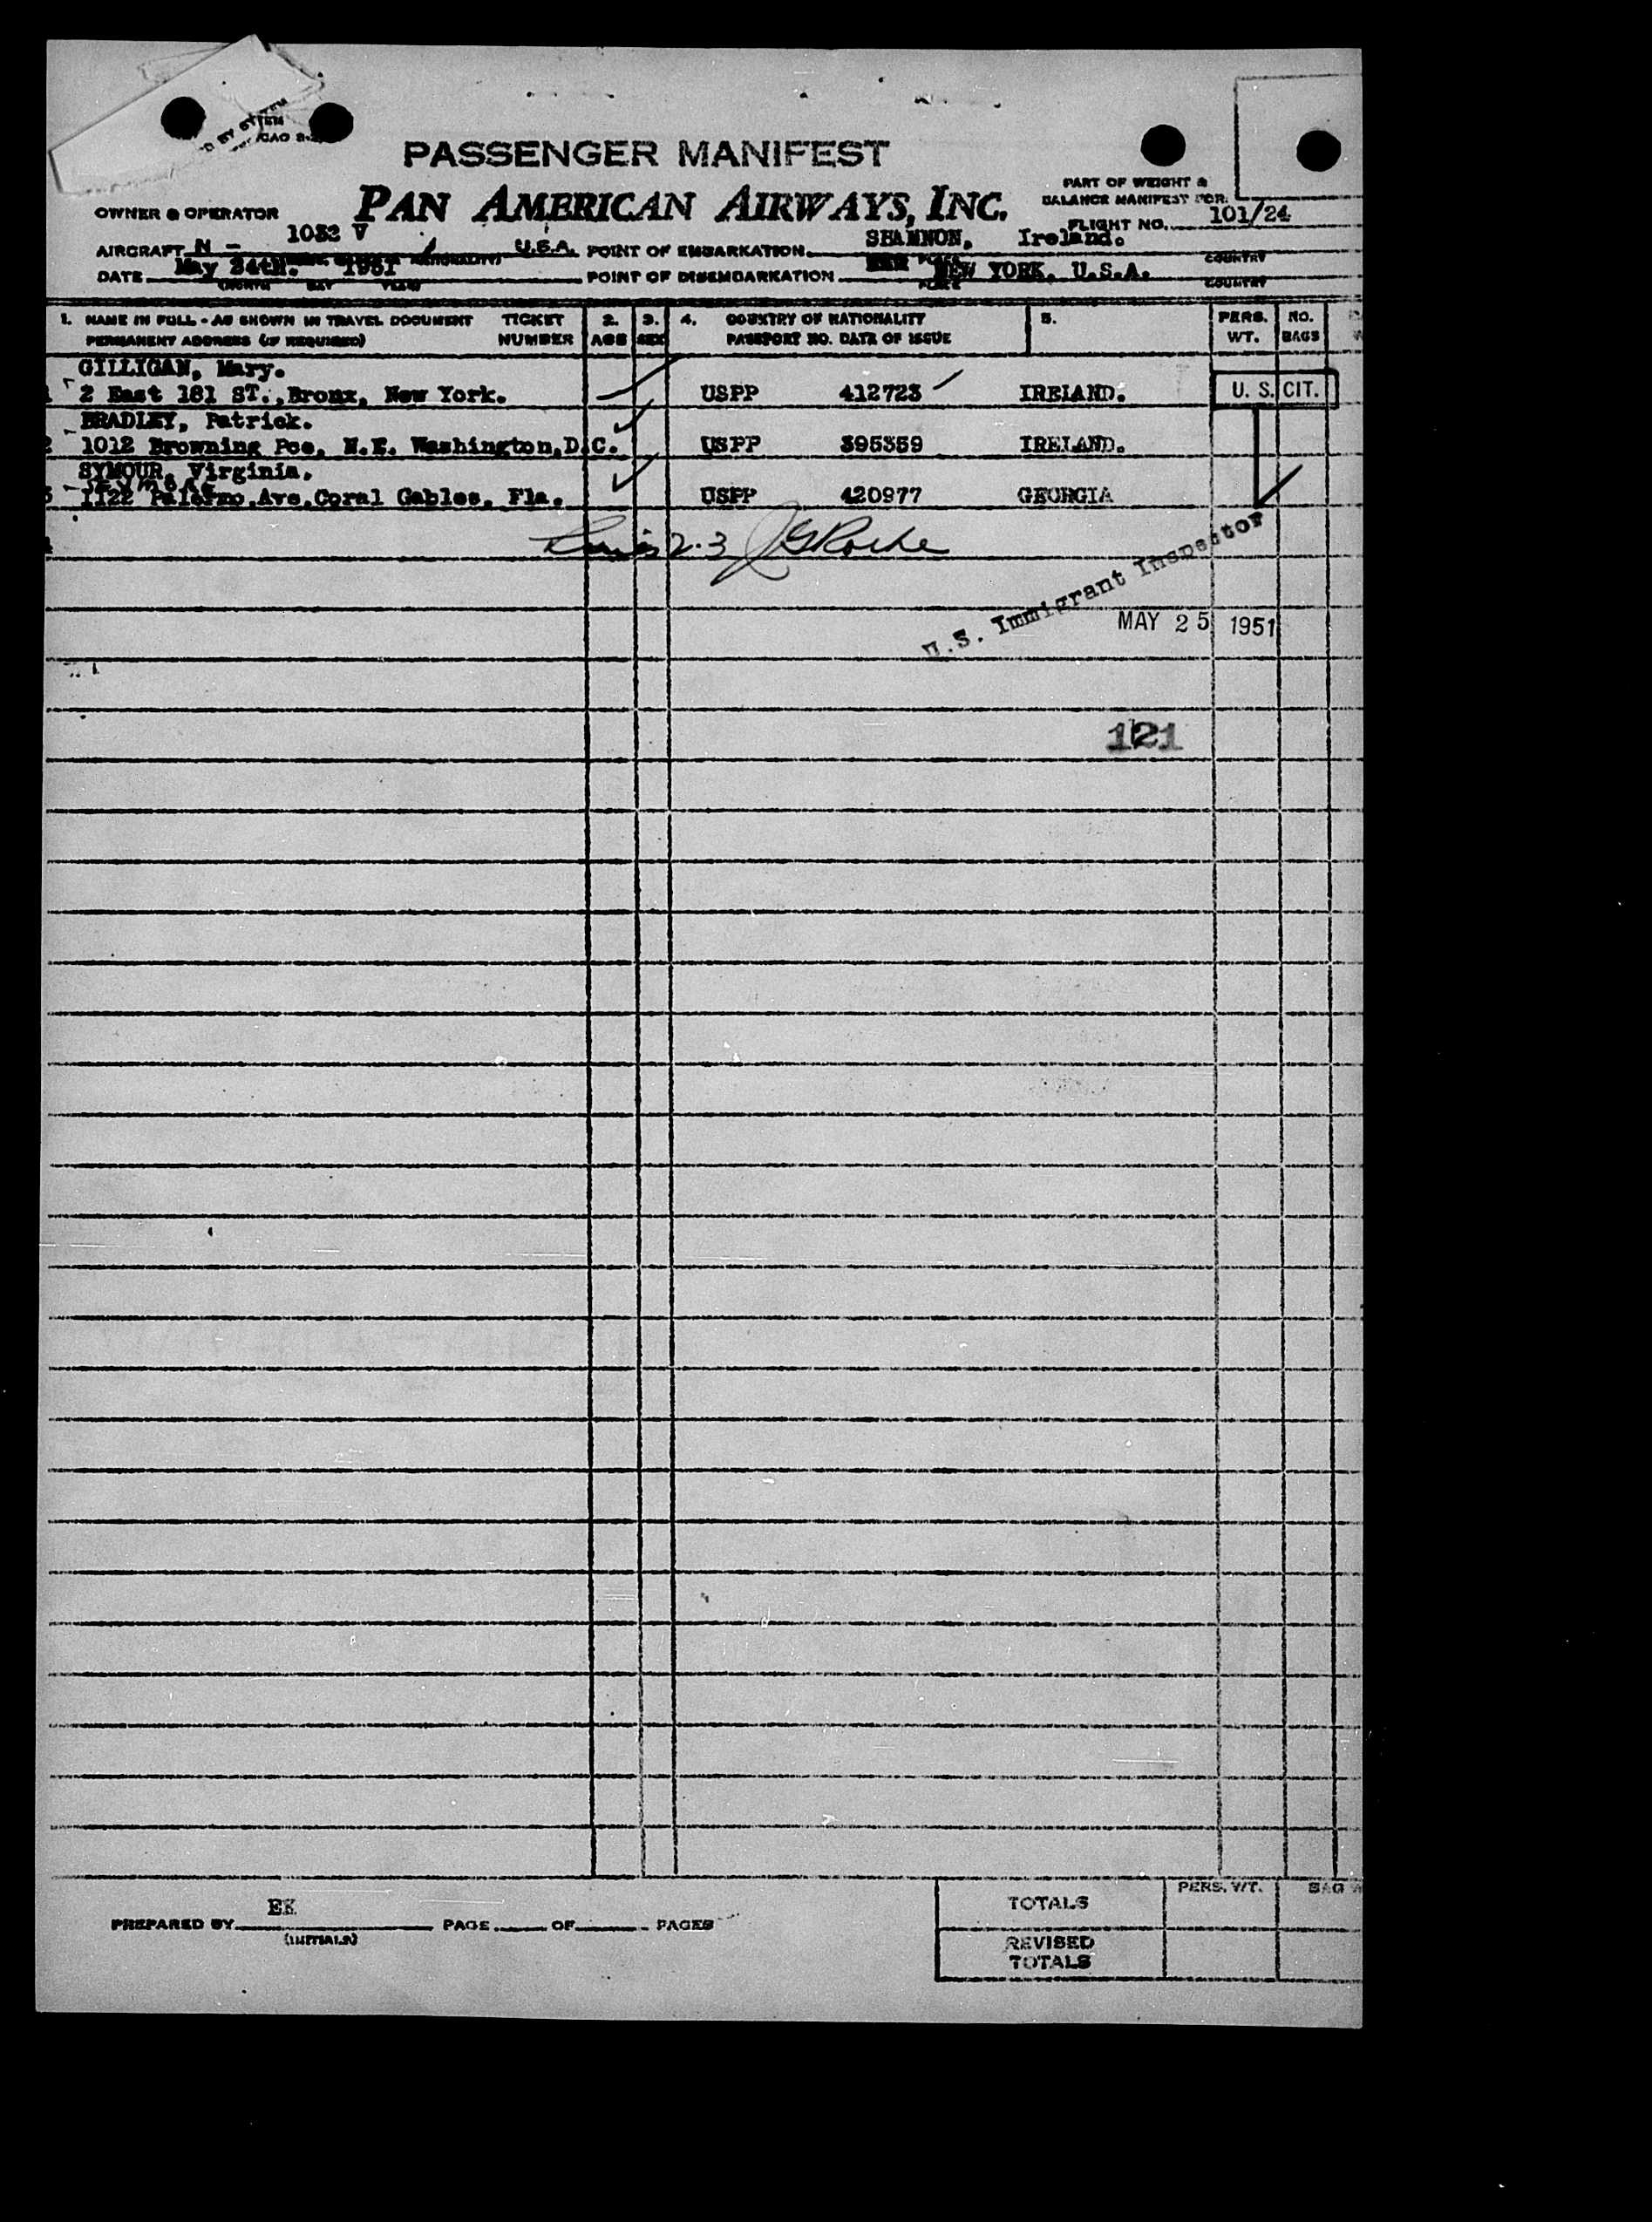 PASSENGER MANIFEST
PAN AMERICAN AIRWAYS, INC.
PART OF WEIGHT &
BALANCE MANIFEST FOR
OWNER & OPERATOR
FLIGHT NO. 101/24
AIRCRAFT N - 1032 V U.S.A. POINT OF EMBARKATION SHANNON, Ireland.
DATE May 24th. 1951 POINT OF DISEMBARKATION NEW YORK, U.S.A.
(MONTH DAY YEAR) PLACE COUNTRY
1. NAME IN FULL - AS SHOWN IN TRAVEL DOCUMENT TICKET 2. 3. 4. COUNTRY OF NATIONALITY 5. PERS. NO.
PERMANENT ADDRESS (IF REQUIRED) NUMBER AGE SEX PASSPORT NO. DATE OF ISSUE WT. BAGS
GILLIGAN, Mary.
2 East 181 ST.,Bronx, New York. USPP 412723 IRELAND. U. S. CIT.
BRADLEY, Patrick.
2 1012 Browning Pce, N.E. Washington,D.C. USPP 395359 IRELAND.
SYMOUR, Virginia.
SEYMORE
3 1122 Palermo.Ave.Coral Gables, Fla. USPP 420977 GEORGIA
2-3 JGRoche
U.S. Immigrant Inspector
MAY 25 1951
121
PREPARED BY EK PAGE OF PAGES
(INITIALS)
PERS. WT. BAG
TOTALS
REVISED
TOTALS